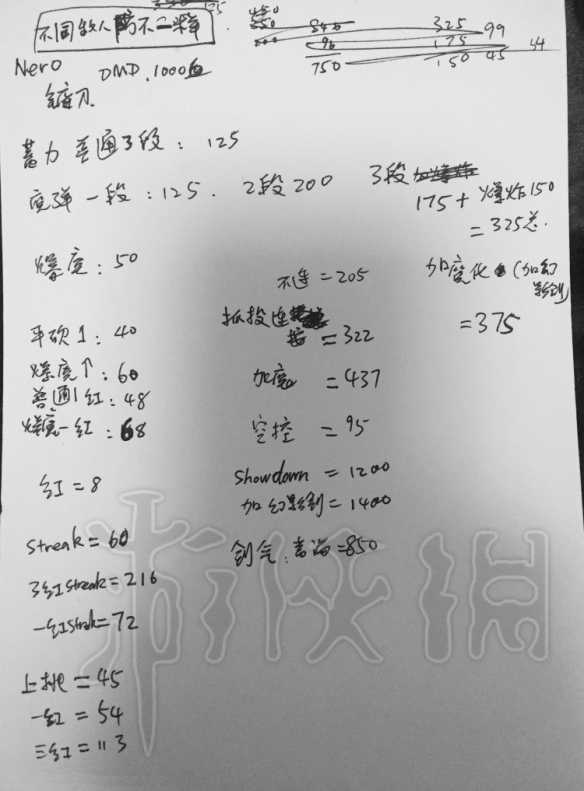 不同敌人 防不一样
325 99
175 45 54
750 150
Nero DMD.1000血
镰刀
蓄力普通3段：125
魔弹一段：125. 2段200 3段
175+爆炸150
=325总.
爆魔：50
不连=205
加魔化（加幻影剑）
=375
抓投连接=322
平砍1：40
爆魔↑：60
加魔=437
普通1红：48
爆魔一红：68
空控=95
红=8
showdown=1200
加幻影剑=1400
streak=60
剑气：=850
3红streak=216
一红streak=72
上挑=45
一红=54
三红=113
游侠网